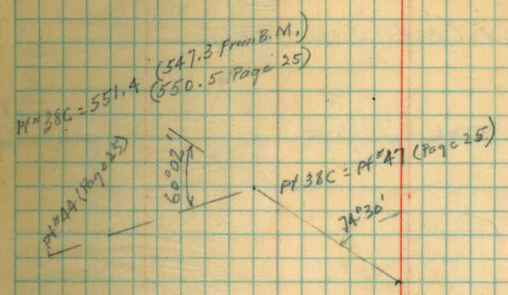 Pt# 38C = 551.4 (547.3 From B.M.)
(550.5 Page 25)
Pt#44 (Page 25)
60°02'
Pt 38C = Pt#47 (Page 25)
74°30'